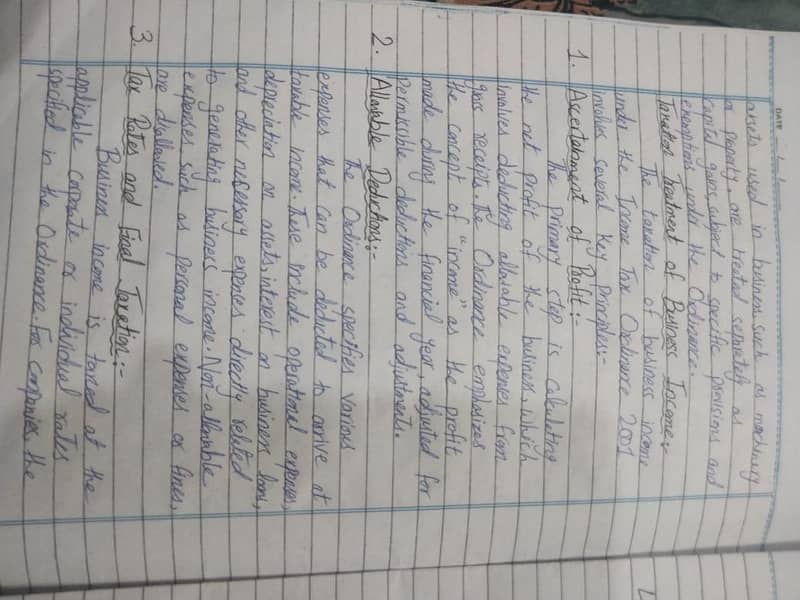 DATE
assets used in business, such as machinery
or property, are treated separately as
capital gain, subject to specific provisions and
exemptions under the Ordinance.
Taxation Treatment of Business Income:-
The taxation of business income
under the Income Tax Ordinance 2001
involves several key principles:-
1. Ascertainment of Profit:-
The primary step is calculating
the net profit of the business, which
involves deducting allowable expenses from
gross receipts. The Ordinance emphasizes
the concept of "income" as the profit
made during the financial year, adjusted for
permissible deductions and adjustments.
2. Allowable Deductions:-
The Ordinance specifies various
expenses that can be deducted to arrive at
taxable income. These include operational expenses,
depreciation on assets, interest on business loans,
and other necessary expenses directly related
to generating business income. Non-allowable
expenses such as personal expenses or fines,
are disallowed.
3. Tax Rates and Final Taxation:-
Business income is taxed at the
applicable corporate or individual rates
specified in the Ordinance. For companies, the